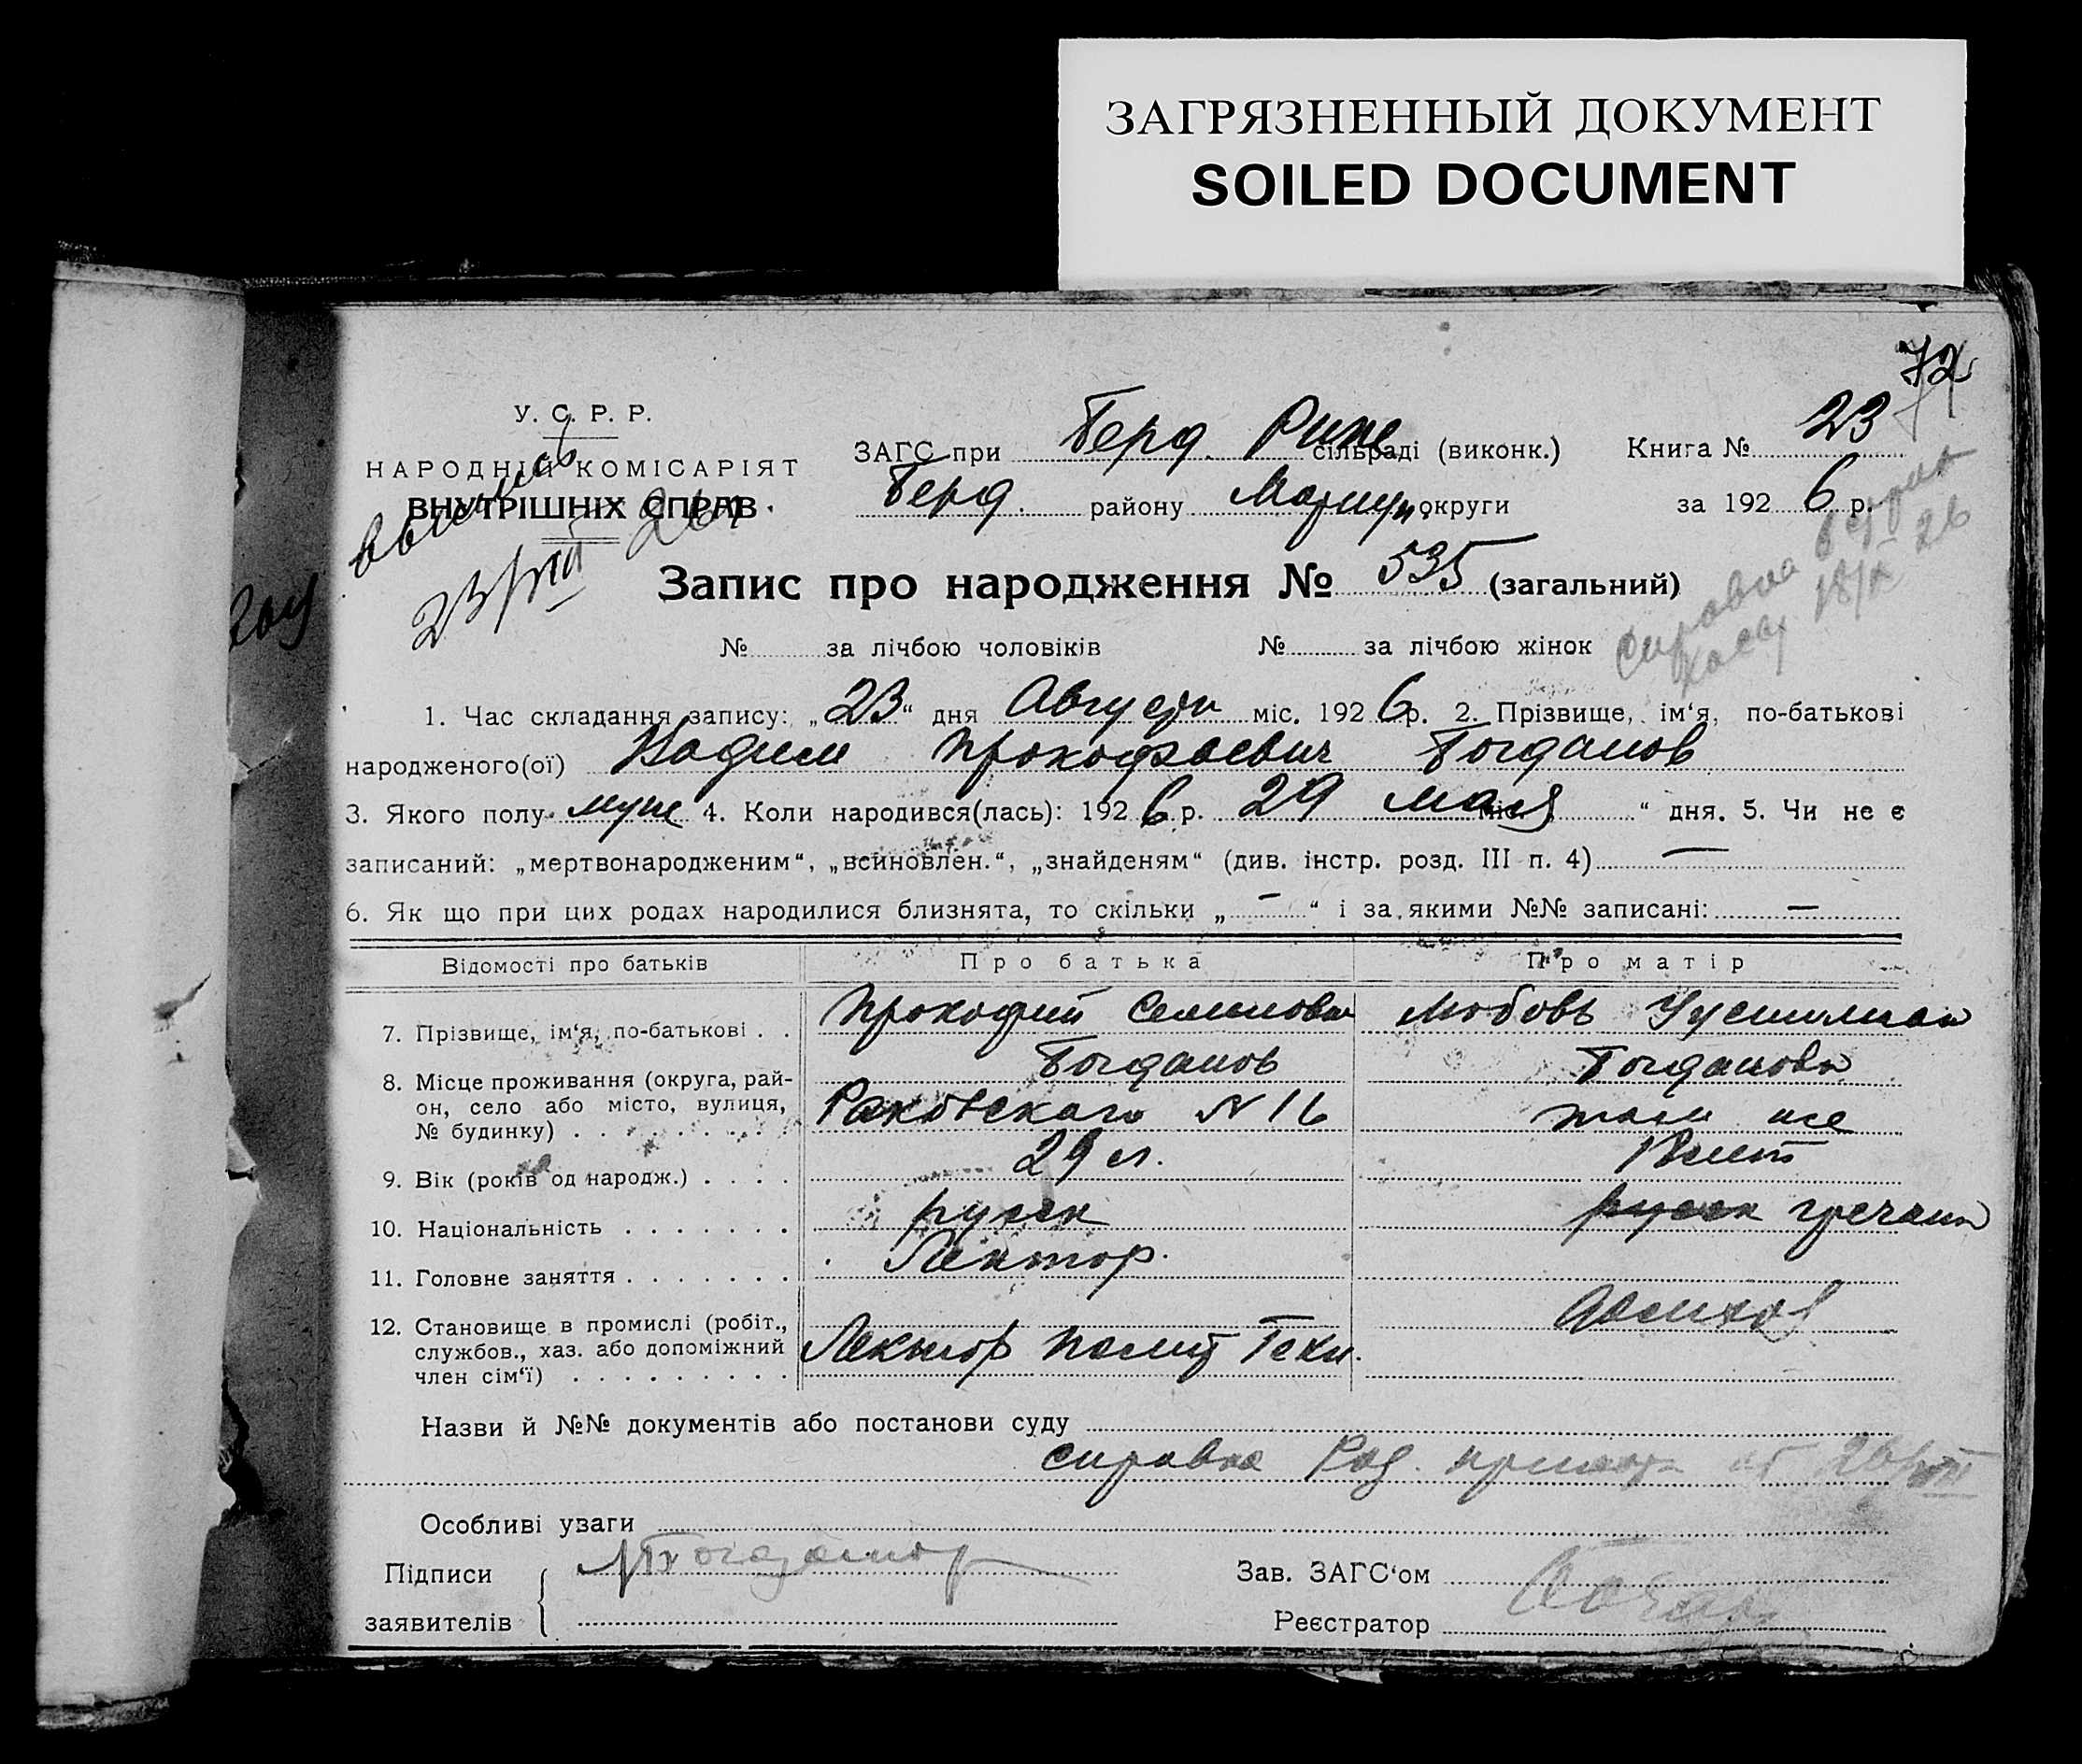 ЗАГРЯЗНЕННЫЙ ДОКУМЕНТ
SOILED DOCUMENT
72
У. С. Р. Р.
НАРОДНІЙ КОМІСАРІЯТ
ВНУТРІШНІХ СПРАВ
23/VIII 26 г.
ЗАГС при Берд. Рике сільраді (виконк.) Книга № 23
Берд. району Мариуп. округи за 1926 р.
Справка
18/X 26
Запис про народження № 535 (загальний)
№ за лічбою чоловіків № за лічбою жінок
1. Час складання запису: „23“ дня Августа міс. 1926 р. 2. Прізвище, ім‘я, по-батькові
народженого(ої) Вадим Прокофьевич Богданов
3. Якого полу муж 4. Коли народився(лась): 1926 р. 29 мая міс. “ дня. 5. Чи не є
записаний: „мертвонародженим“, „всиновлен.“, „знайденям“ (див. інстр. розд. III п. 4) —
6. Як що при цих родах народилися близнята, то скільки „ - “ і за якими №№ записані: —
Відомості про батьків Про батька Про матір
7. Прізвище, ім‘я, по-батькові . . Прокофий Семенович Любовь
Богданов Богданова
8. Місце проживання (округа, рай-
он, село або місто, вулиця,
№ будинку) . . . . . . . . . Раковского N 16 там же
9. Вік (років од народж.) . . . . 29 л. лет
10. Національність . . . . . . . русск русск гречанка
11. Головне заняття . . . . . . . Лектор.
12. Становище в промислі (робіт.,
службов., хаз. або допоміжний
член сім‘ї) . . . . . . . . . Лектор Полит Техн.
Назви й №№ документів або постанови суду
справка Род. приюта от 26/VIII
Особливі уваги
Підписи
заявителів Богданов
Зав. ЗАГС‘ом
Реєстратор